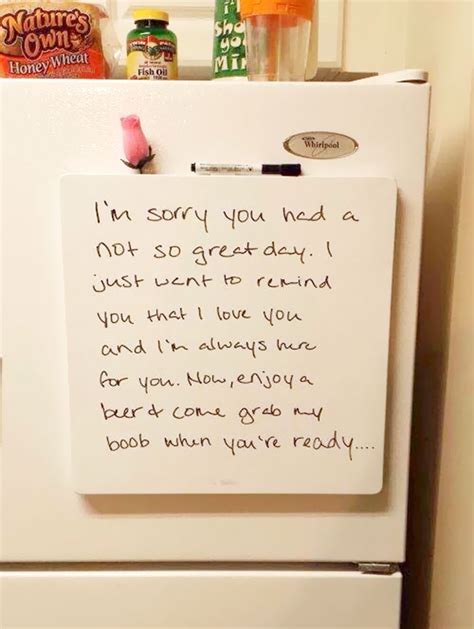 Nature's
Own
Honey Wheat
Fish Oil
Sho
yo
Mi
Whirlpool
I'm sorry you had a
not so great day. I
just want to remind
you that I love you
and I'm always here
for you. Now, enjoy a
beer & come grab my
boob when you're ready....